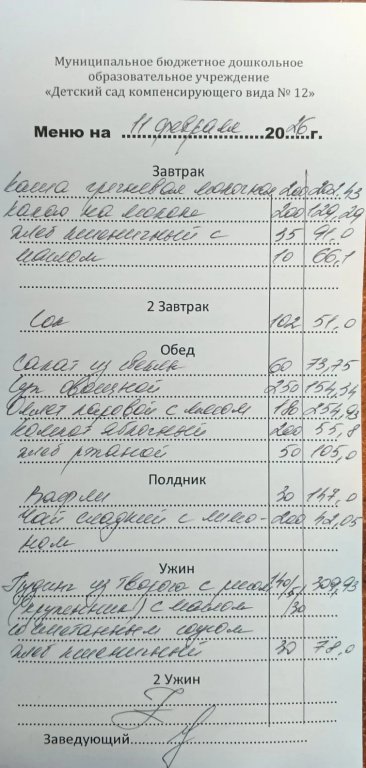 Муниципальное бюджетное дошкольное
образовательное учреждение
«Детский сад компенсирующего вида № 12»
Меню на 11 февраля 2026 г.
Завтрак
Каша гречневая молочная 200 202,43
какао на молоке 200 129,29
хлеб пшеничный с 35 91,0
маслом 10 66,1
2 Завтрак
Сок 102 51,0
Обед
Салат из свеклы 60 73,75
Суп овощной 250 154,34
Омлет паровой с мясом 180 254,93
компот яблочный 200 55,8
хлеб ржаной 50 105,0
Полдник
Вафли 30 147,0
Чай сладкий с лимо- 200 42,05
ном
Ужин
Пудинг из творога с рисом 309,93
(крупеник) с маслом /30
со сметанным соусом
хлеб пшеничный 30 78,0
2 Ужин
Заведующий